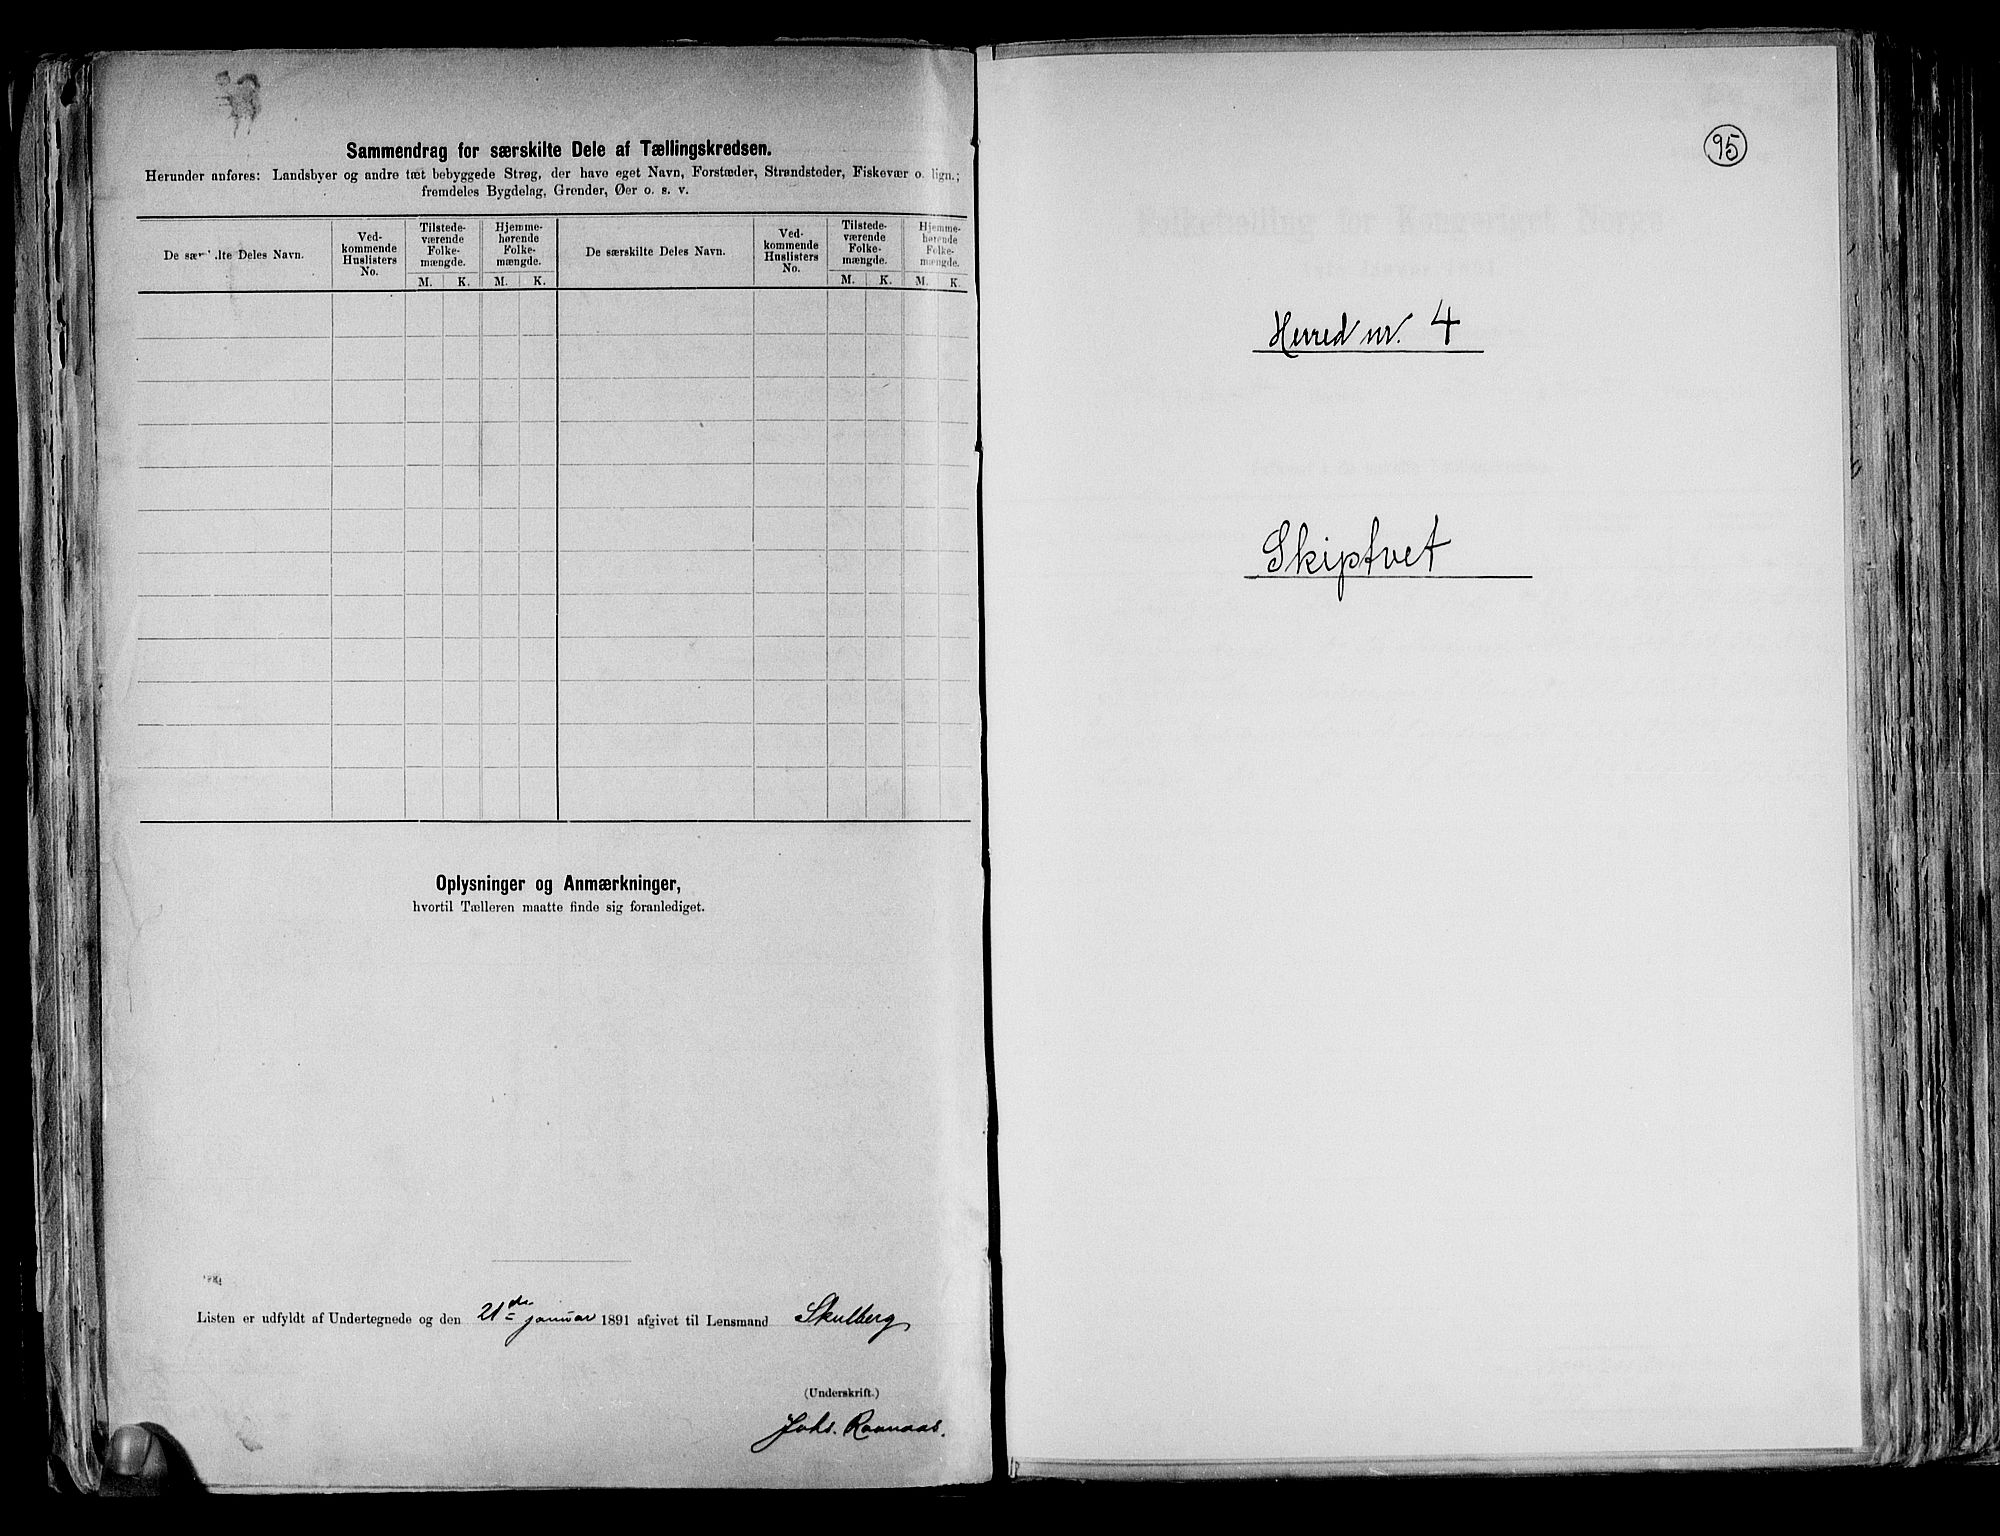 Sammendrag for særskilte Dele af Tællingskredsen.
Herunder anføres: Landsbyer og andre tæt bebyggede Strøg, der have eget Navn, Forstæder, Strandsteder, Fiskevær o. lign.;
fremdeles Bygdelag, Grender, Øer o. s. v.
De særskilte Deles Navn.
Ved-
kommende
Huslisters
No.
Tilstede-
værende
Folke-
mængde.
M. K.
Hjemme-
hørende
Folke-
mængde.
M. K.
De særskilte Deles Navn.
Ved-
kommende
Huslisters
No.
Tilstede-
værende
Folke-
mængde.
M. K.
Hjemme-
hørende
Folke-
mængde.
M. K.
Oplysninger og Anmærkninger,
hvortil Tælleren maatte finde sig foranlediget.
Listen er udfyldt af Undertegnede og den 21de januar 1891 afgivet til Lensmand Skulberg
(Underskrift.)
Johs. Ravnaas.
95
Herred nr. 4
Skiptvet